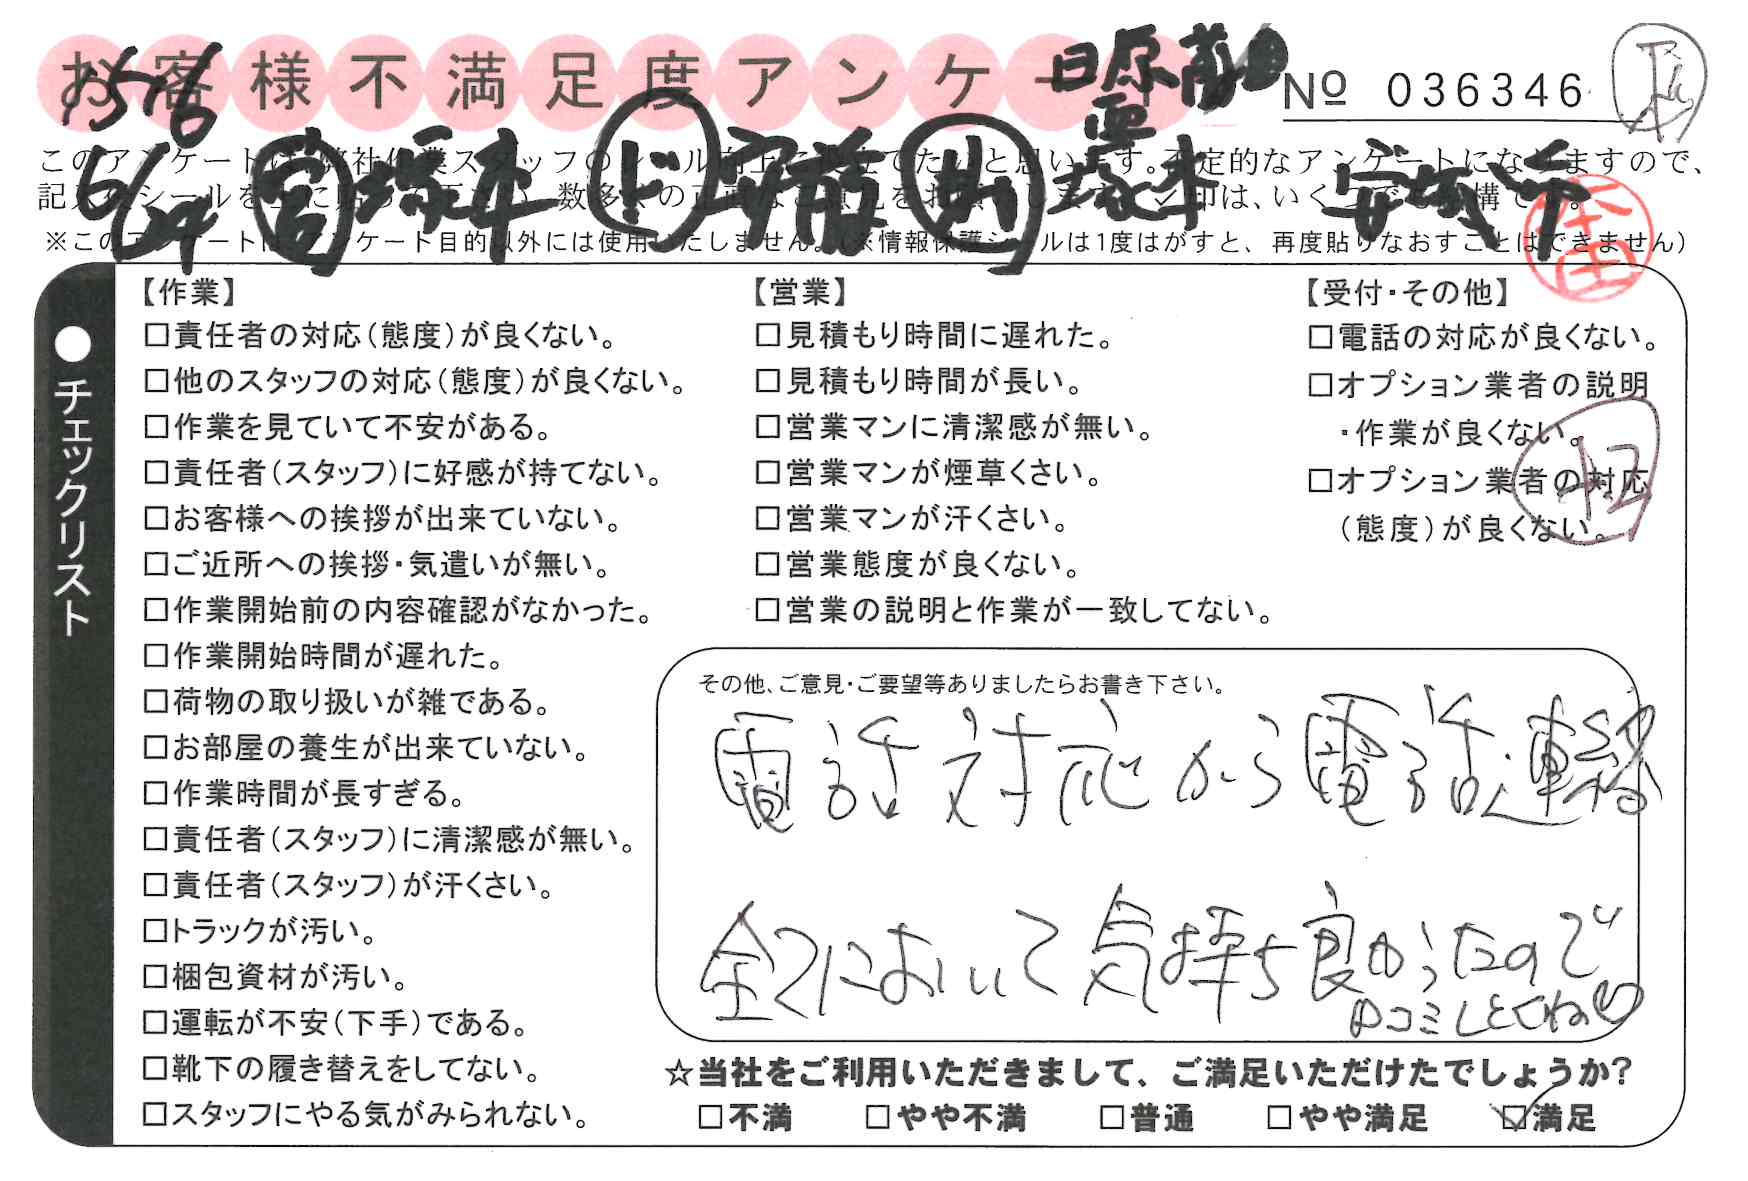 お客様不満足度アンケート
No 036346
1576
6/24 営 塚本 ド 安藤 助 塚本 安城市
このアンケートは、弊社作業スタッフのレベル向上に役立てたいと思います。否定的なアンケートになりますので、
記入後シールを上に貼って下さい。数多くの正直なご意見をお願いします。レ印は、いくつでも結構です。
※このアンケートは、アンケート目的以外には使用いたしません。(※情報保護シールは1度はがすと、再度貼りなおすことはできません)
●チェックリスト
【作業】
□責任者の対応(態度)が良くない。
□他のスタッフの対応(態度)が良くない。
□作業を見ていて不安がある。
□責任者(スタッフ)に好感が持てない。
□お客様への挨拶が出来ていない。
□ご近所への挨拶・気遣いが無い。
□作業開始前の内容確認がなかった。
□作業開始時間が遅れた。
□荷物の取り扱いが雑である。
□お部屋の養生が出来ていない。
□作業時間が長すぎる。
□責任者(スタッフ)に清潔感が無い。
□責任者(スタッフ)が汗くさい。
□トラックが汚い。
□梱包資材が汚い。
□運転が不安(下手)である。
□靴下の履き替えをしてない。
□スタッフにやる気がみられない。
【営業】
□見積もり時間に遅れた。
□見積もり時間が長い。
□営業マンに清潔感が無い。
□営業マンが煙草くさい。
□営業マンが汗くさい。
□営業態度が良くない。
□営業の説明と作業が一致してない。
【受付・その他】
□電話の対応が良くない。
□オプション業者の説明
・作業が良くない。
□オプション業者の対応
(態度)が良くない。
その他、ご意見・ご要望等ありましたらお書き下さい。
電話対応から電話連絡
全てにおいて気持ち良かったので
口コミしとくね
☆当社をご利用いただきまして、ご満足いただけたでしょうか?
□不満 □やや不満 □普通 □やや満足 ☑満足